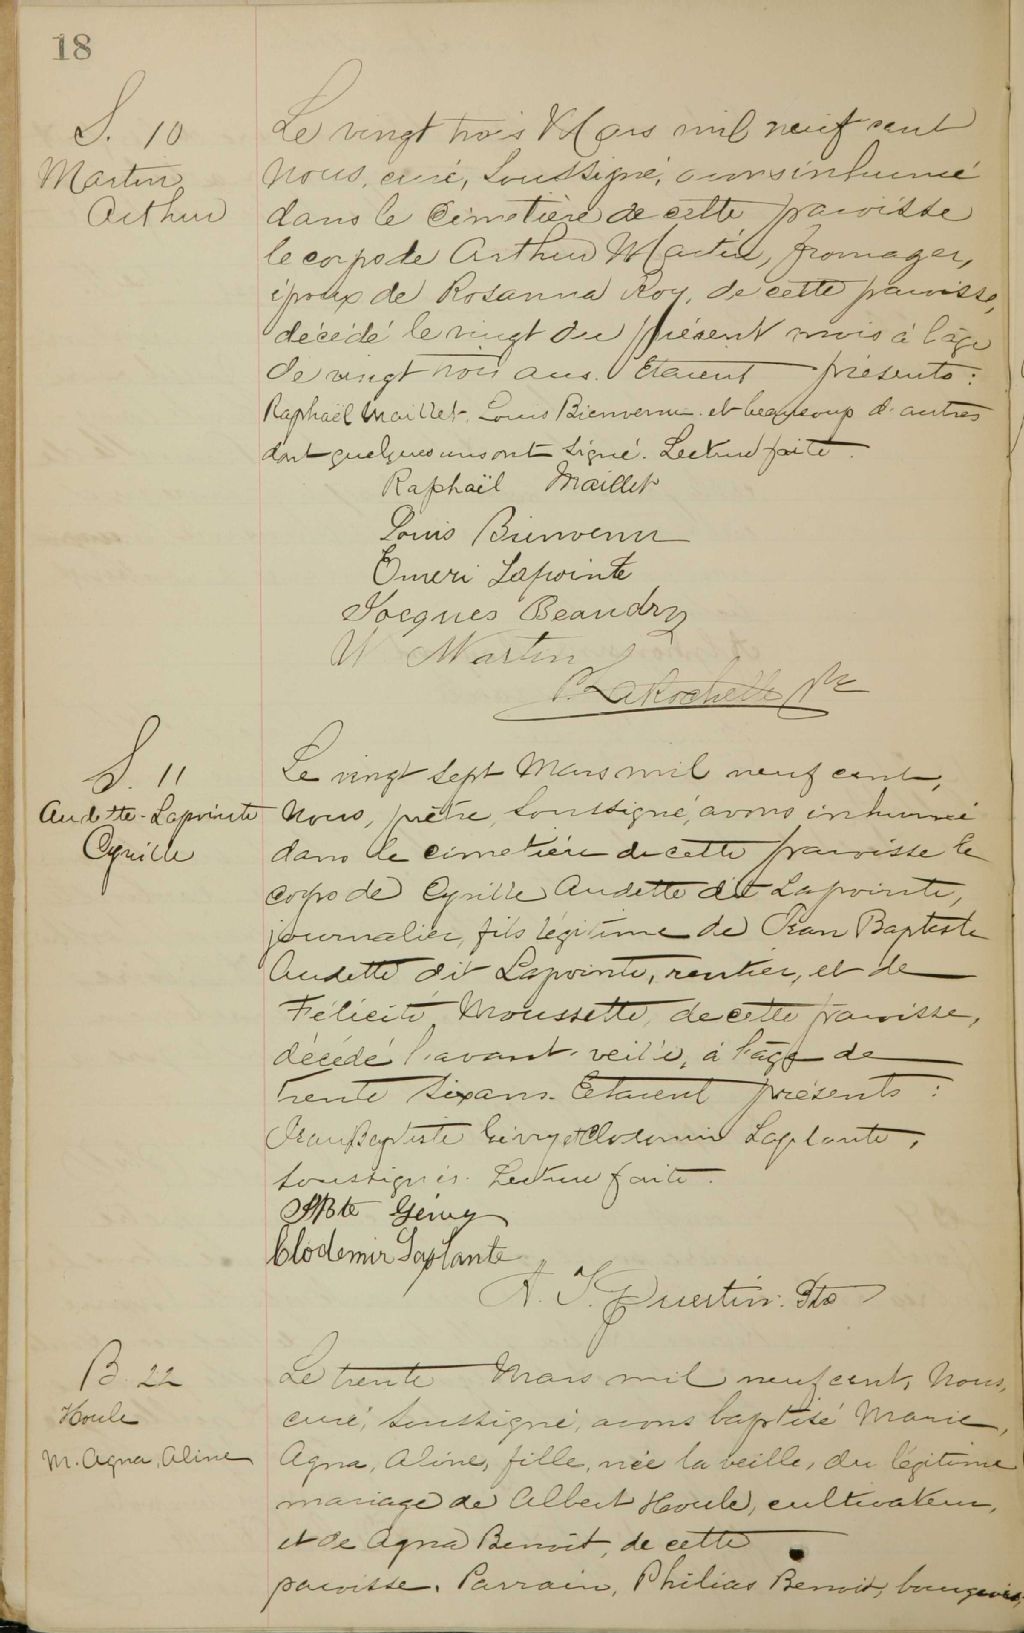 18
S. 10
Martin
Arthur
Le vingt trois Mars mil neuf cent
nous, curé, soussigné, avons inhumé
dans le cimetière de cette paroisse
le corps de Arthur Martin, fromager,
époux de Rosanna Roy, de cette paroisse,
décédé le vingt du présent mois à l'âge
de vingt trois ans. Etaient présents :
Raphaël Maillet, Louis Bienvenu et beaucoup d'autres
dont quelques uns ont signé. Lecture faite.
Raphaël Maillet
Louis Bienvenu
Emeri Lapointe
Jacques Beaudry
W Martin
P. LaRochelle Ptre
S. 11
Audette-Lapointe
Cyrille
Le vingt sept Mars mil neuf cent,
Nous, prêtre, soussigné, avons inhumé
dans le cimetière de cette paroisse le
corps de Cyrille Audette dit Lapointe,
journalier, fils légitime de Jean Baptiste
Audette dit Lapointe, rentier, et de
Félicité Moussette, de cette paroisse,
décédé l'avant-veille, à l'âge de
trente six ans. Etaient présents :
Jean Baptiste Gévry et Clodomir Laplante,
soussignés. Lecture faite.
J Bte Gévry
Clodemir Laplante
A. J. Quertin. Ptre
B. 22
Houle
M. Agna, Aline
Le trente Mars mil neuf cent, Nous,
curé, soussigné, avons baptisé Marie,
Agna, Aline, fille, née la veille, du légitime
mariage de Albert Houle, cultivateur,
et de Agna Benoit, de cette
paroisse. Parrain, Philias Benoit, bourgeois,